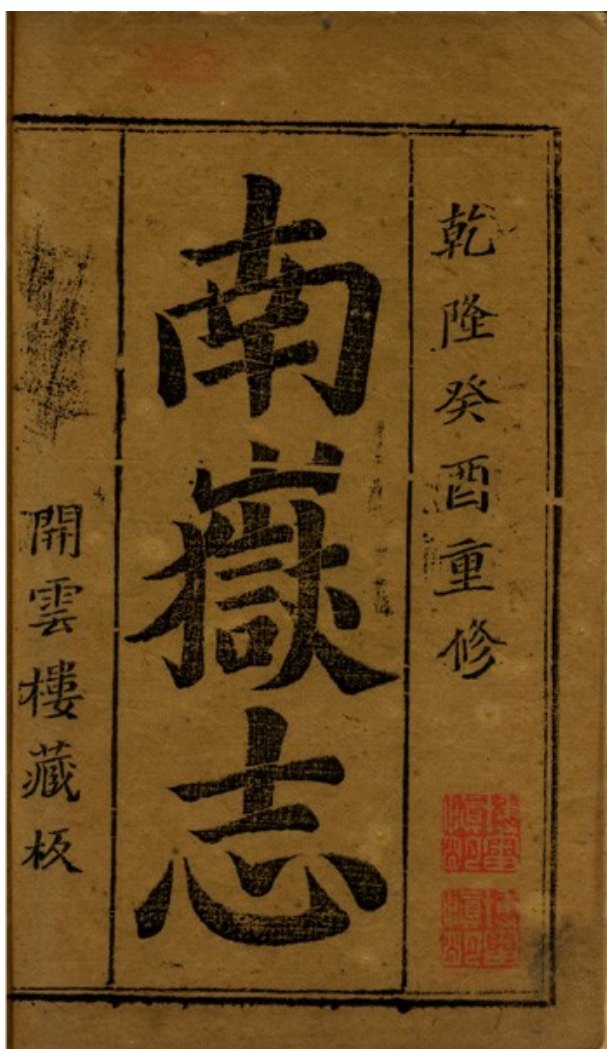 乾隆癸酉重修
南嶽志
開雲樓藏板